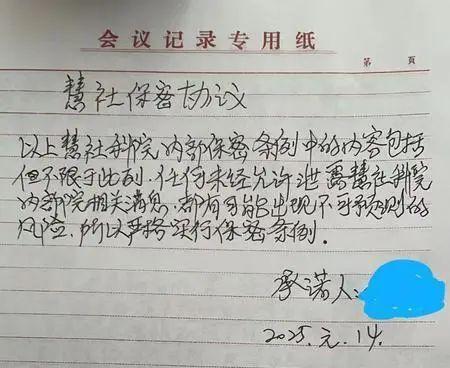 会议记录专用纸
第 页
慧社保密协议
以上慧社科院内部保密条例中的内容包括
但不限于此列.任何未经允许泄露慧社科院
内部院相关消息.都有可能出现不可预测的
风险.所以严格实行保密条例.
承诺人:
2025.元.14.